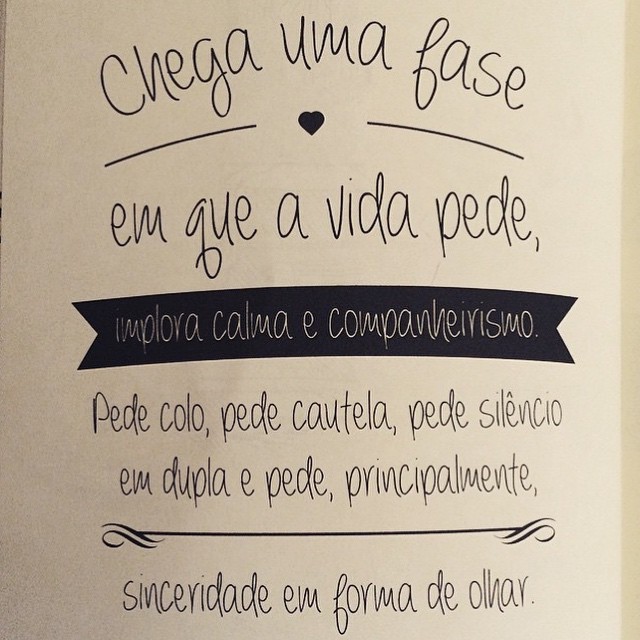 Chega uma fase
em que a vida pede,
implora calma e companheirismo.
Pede colo, pede cautela, pede silêncio
em dupla e pede, principalmente,
sinceridade em forma de olhar.